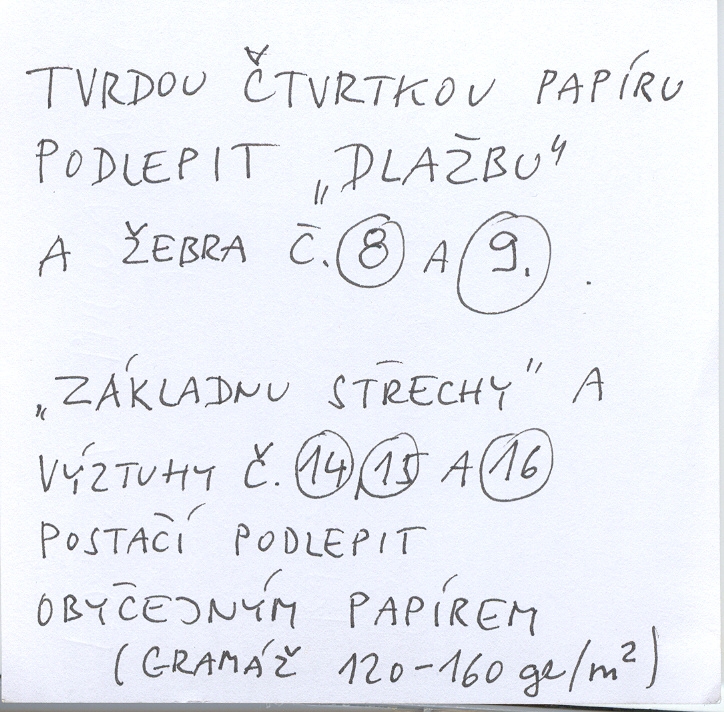 TVRDOU ČTVRTKOU PAPÍRU
PODLEPIT „DLAŽBU"
A ŽEBRA Č. 8 A 9. .
„ZÁKLADNU STŘECHY" A
VÝZTUHY Č. 14 15 A 16
POSTAČÍ PODLEPIT
OBYČEJNÝM PAPÍREM
(GRAMÁŽ 120-160 gr/m²)